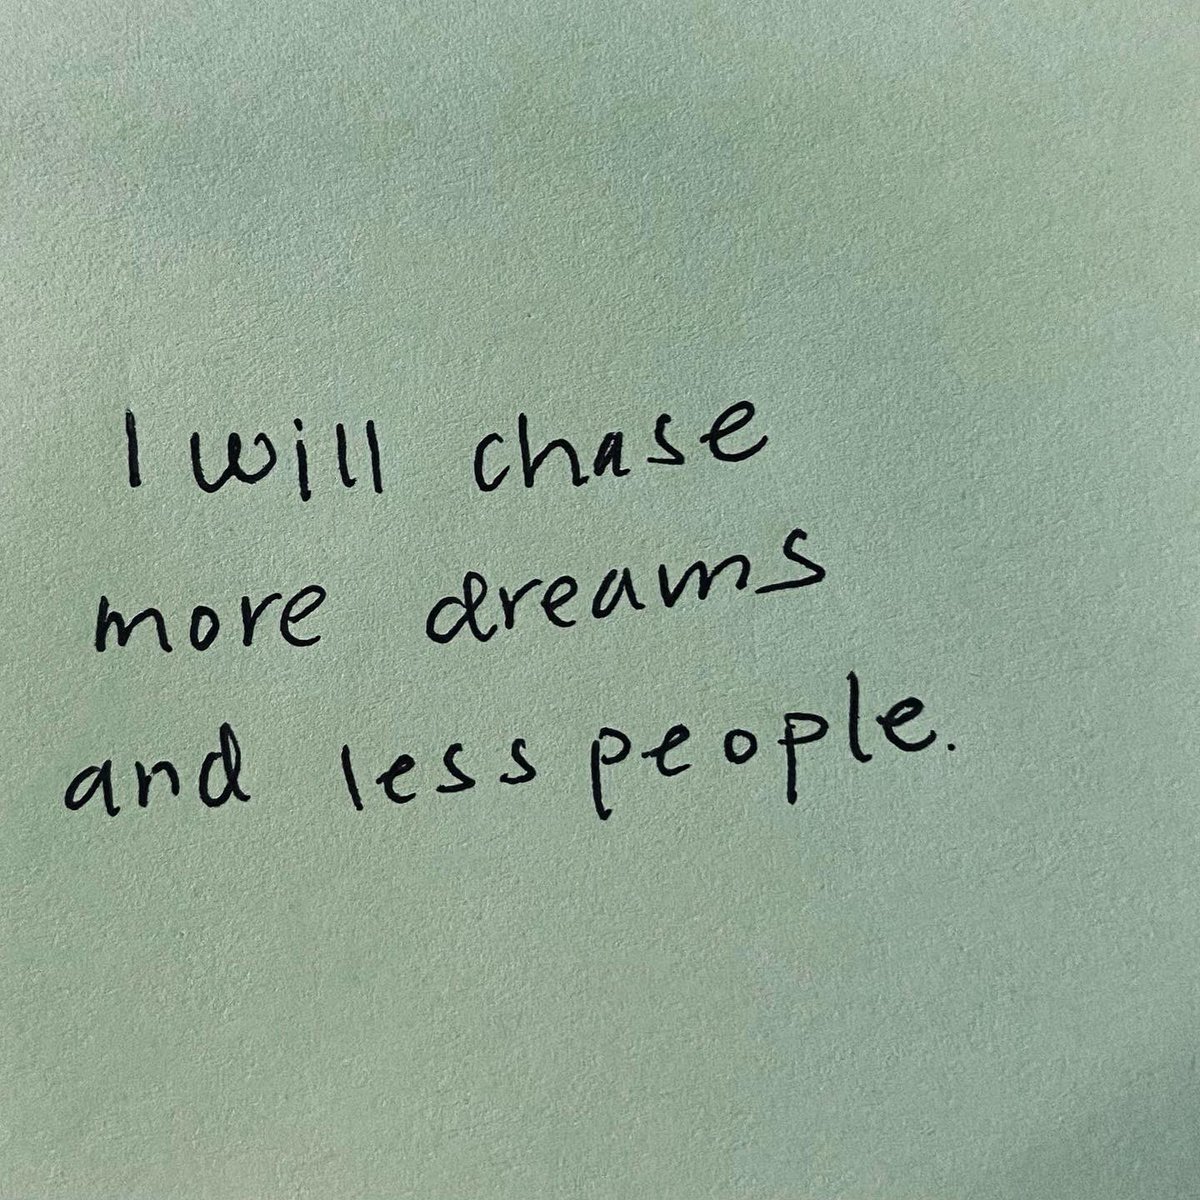 I will chase
more dreams
and less people.